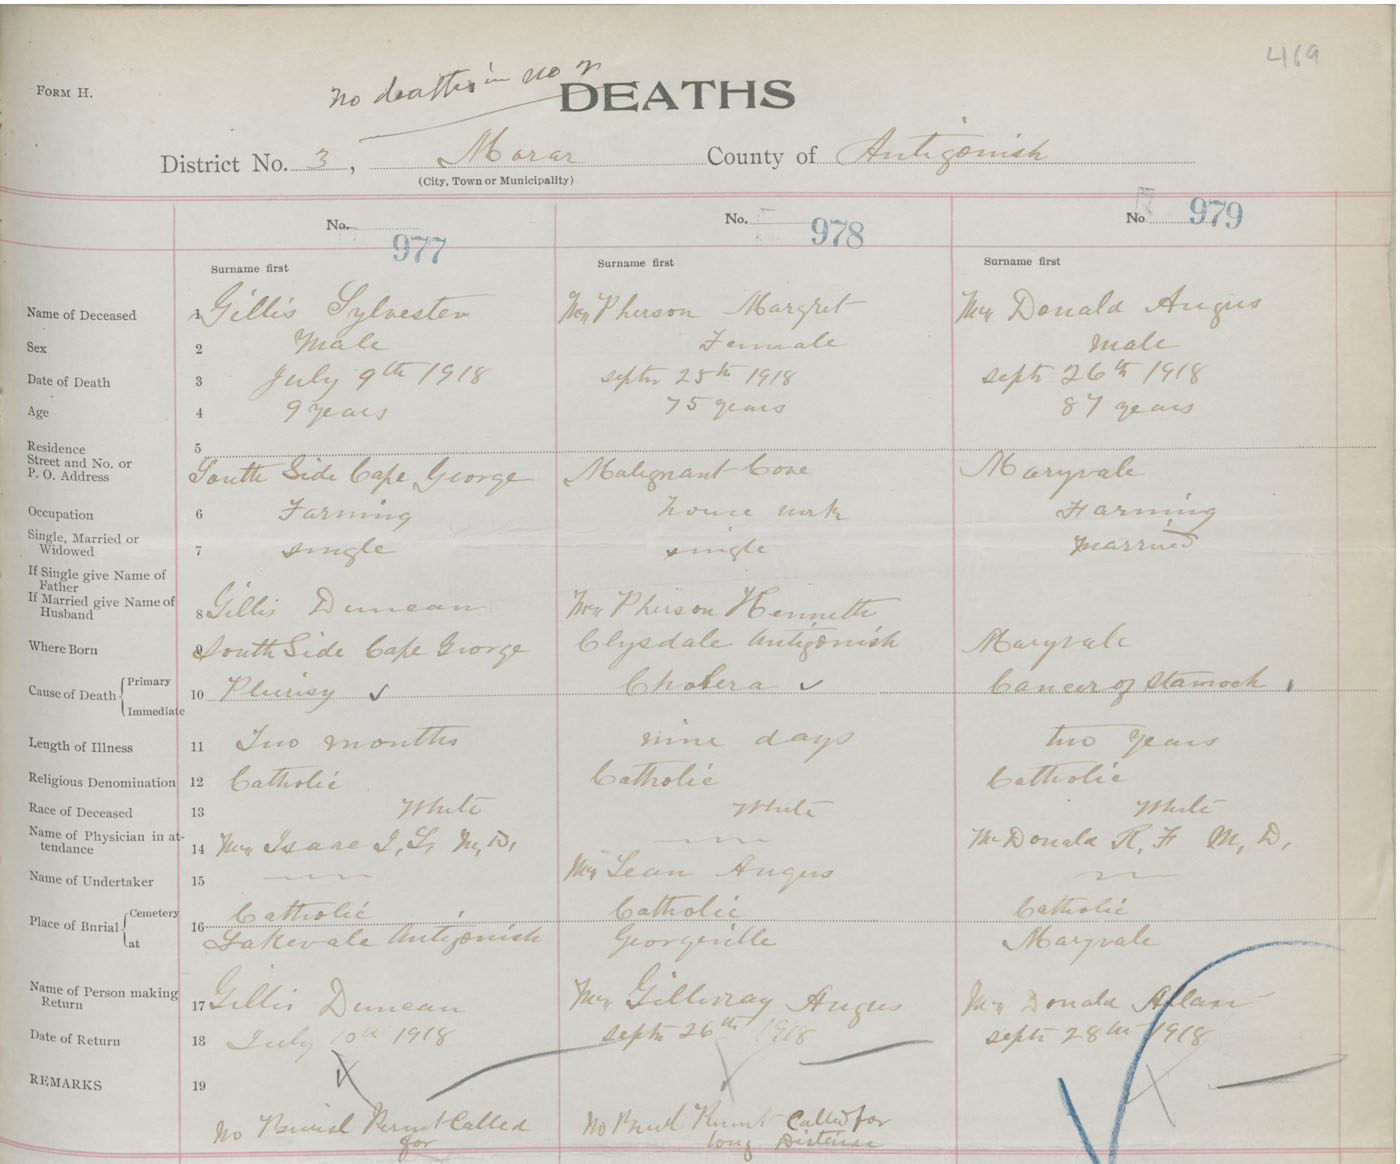 469
FORM H.
No deaths in no 2
DEATHS
District No. 3, Morar County of Antigonish
(City, Town or Municipality)
No. 977 No. 978 No 979
Surname first Surname first Surname first
Name of Deceased 1 Gillis Sylvester McPherson Margret McDonald Angus
Sex 2 Male Female Male
Date of Death 3 July 9th 1918 septr 25th 1918 septr 26th 1918
Age 4 9 years 75 years 87 years
Residence 5
Street and No. or
P. O. Address South Side Cape George Malignant Cove Maryvale
Occupation 6 Farming house work Farming
Single, Married or
Widowed 7 single single married
If Single give Name of
Father
If Married give Name of
Husband 8 Gillis Duncan McPherson Kenneth
Where Born 9 South Side Cape George Clysdale Antigonish Maryvale
Cause of Death { Primary
10 Plurisy Cholera Cancer of Stamock
Immediate
Length of Illness 11 Two months nine days two years
Religious Denomination 12 Catholic Catholic Catholic
Race of Deceased 13 White White White
Name of Physician in at-
tendance 14 Mc Isaac J. L. M. D. McDonald R. F. M. D.
Name of Undertaker 15 McLean Angus
Place of Burial { Cemetery Catholic Catholic Catholic
at 16 Lakevale Antigonish Georgeville Maryvale
Name of Person making
Return 17 Gillis Duncan McGillivray Angus McDonald Allan
Date of Return 18 July 10th 1918 septr 26th 1918 septr 28th 1918
REMARKS 19
No Burial Permit Called for No Burl Permit Called for
long Distance